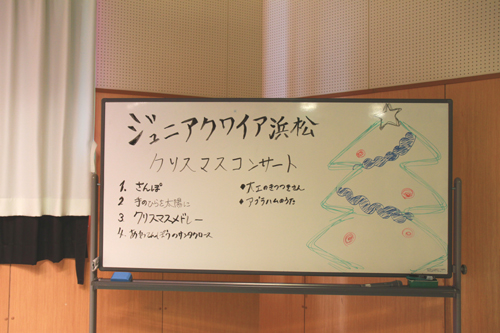 ジュニアクワイア浜松
クリスマスコンサート
1. さんぽ
2 手のひらを太陽に
3 クリスマスメドレー
4. あわてんぼうのサンタクロース
・大工のきつつきさん
・アブラハムのうた